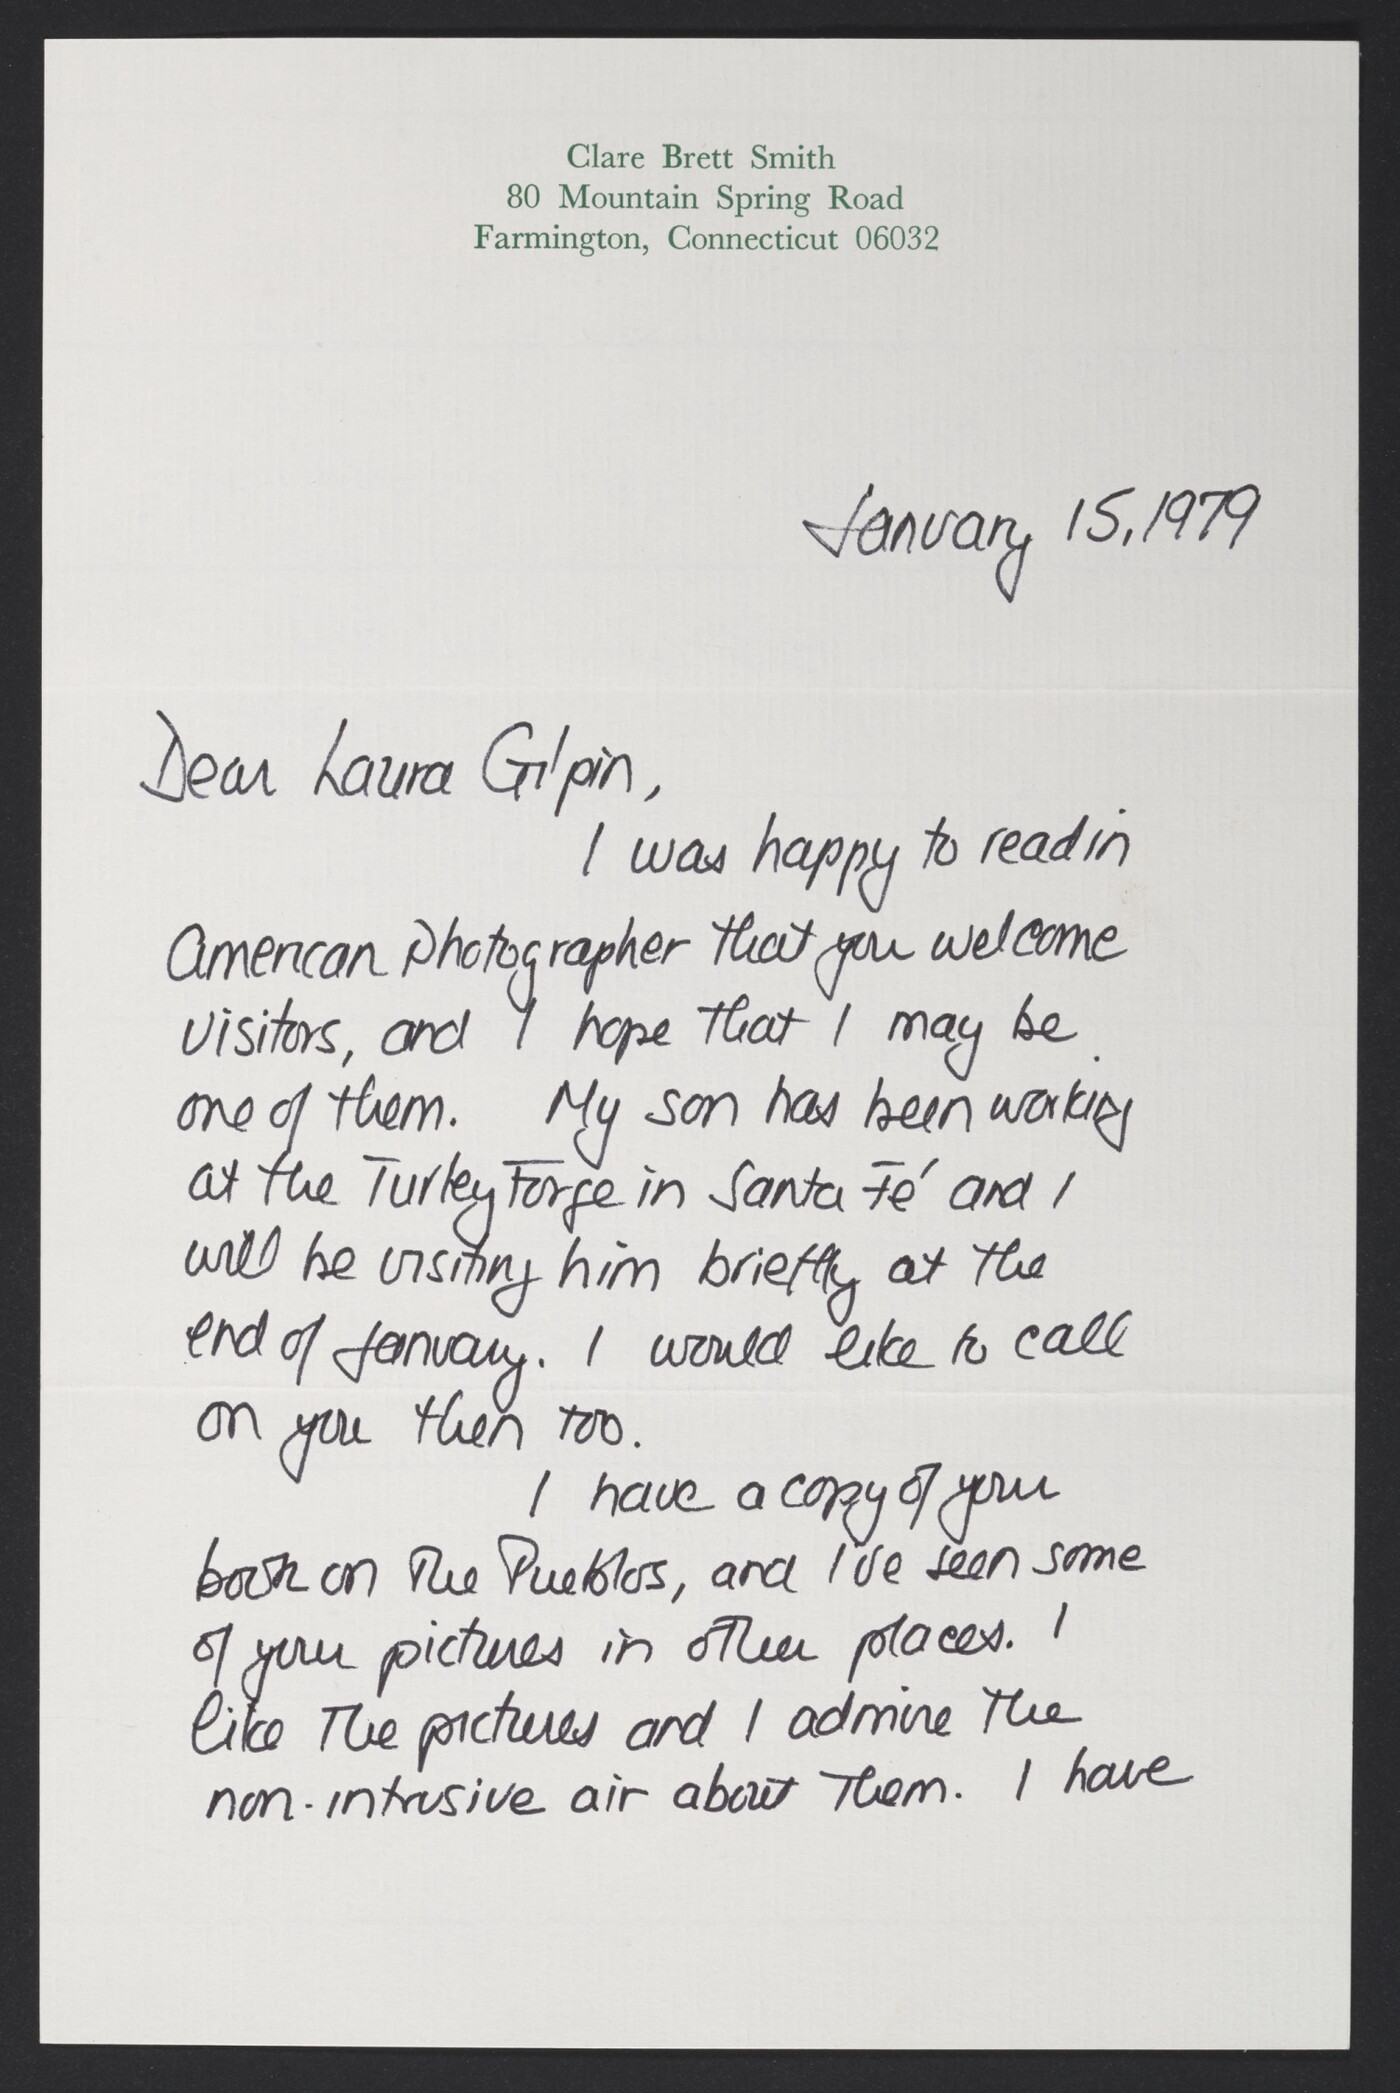 Clare Brett Smith
80 Mountain Spring Road
Farmington, Connecticut 06032
January 15, 1979
Dear Laura Gilpin,
I was happy to read in
American Photographer that you welcome
visitors, and I hope that I may be
one of them. My son has been working
at the Turley Forge in Santa Fé and I
will be visiting him briefly at the
end of January. I would like to call
on you then too.
I have a copy of your
book on The Pueblos, and I've seen some
of your pictures in other places. I
like the pictures and I admire the
non-intrusive air about them. I have